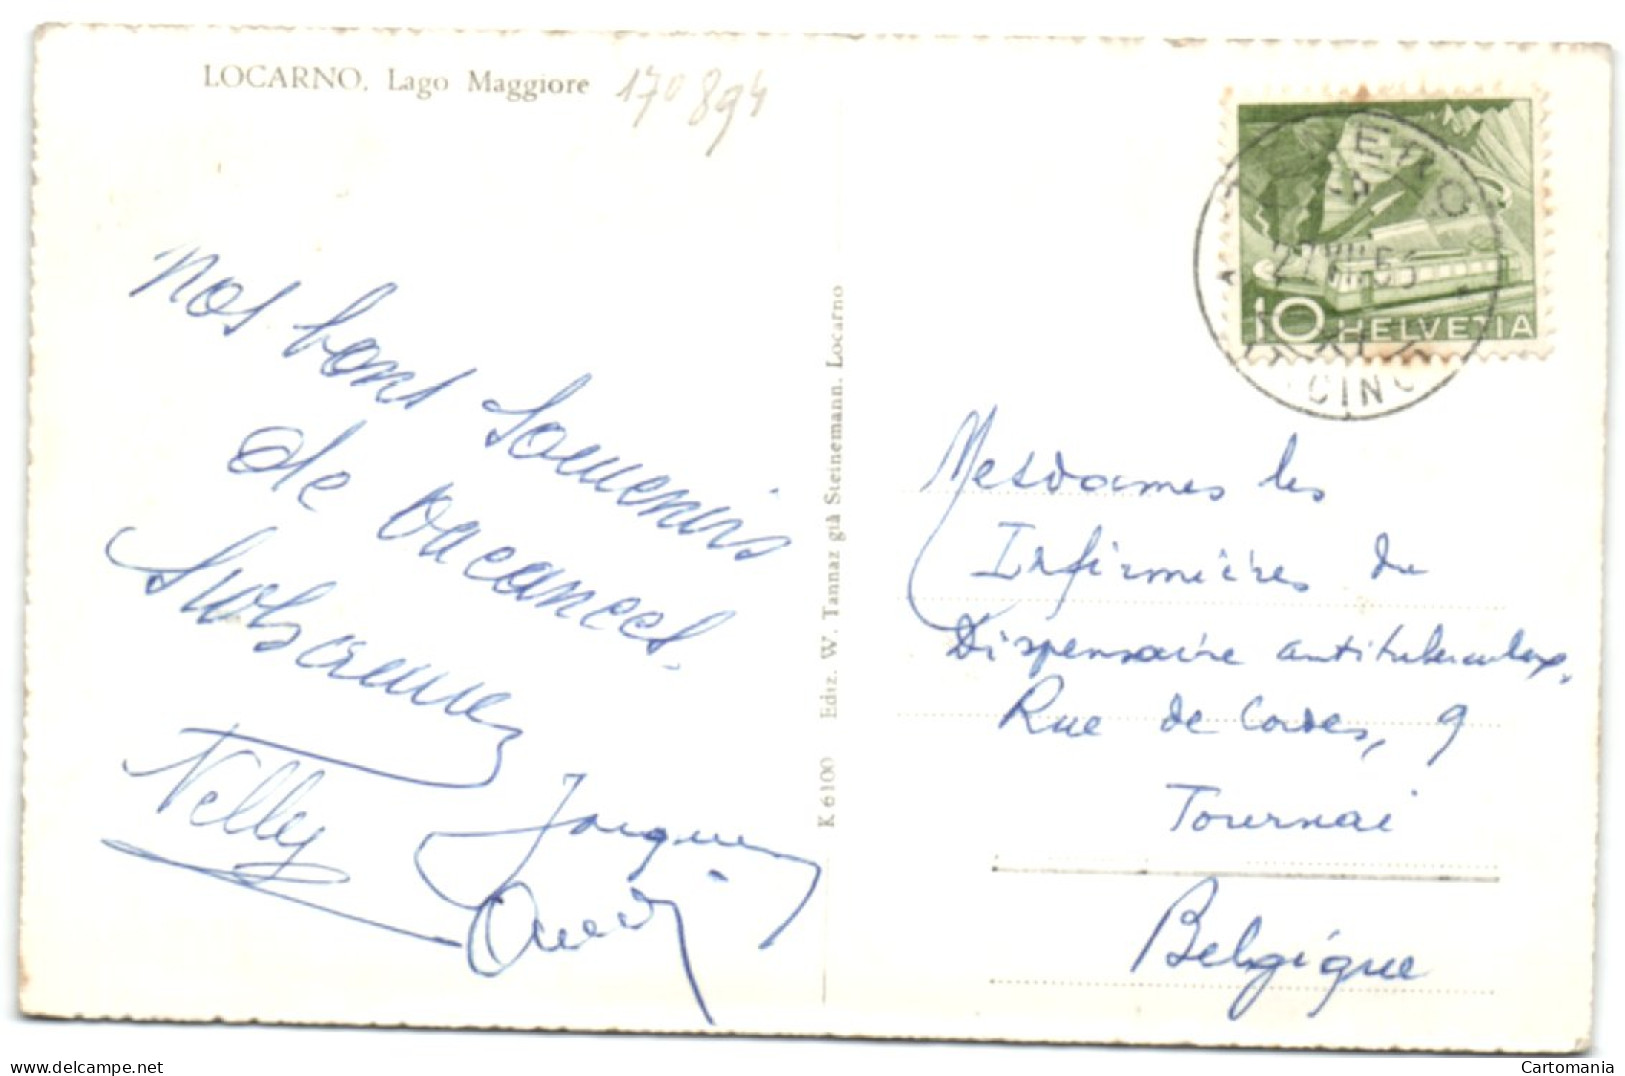 LOCARNO, Lago Maggiore
170894
10 HELVETIA
Nos bons Souvenirs
de vacances.
Nelly
Jacques
K 6100 Ediz. W. Tannaz già Steinemann, Locarno
Mesdames les
Infirmières du
Dispensaire antituberculeux,
Rue de Cordes, 9
Tournai
Belgique
Cartomania